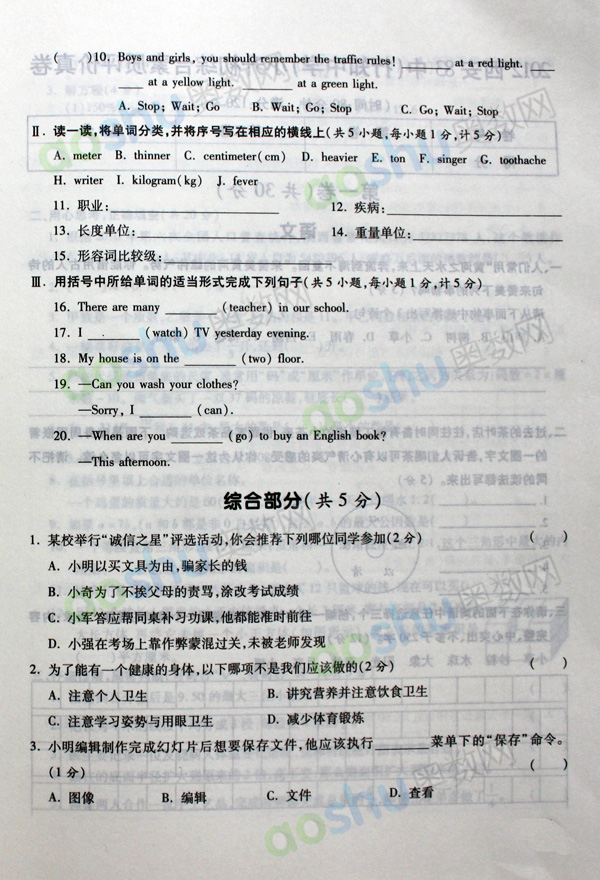 (  )10. Boys and girls, you should remember the traffic rules! ______ at a red light. ______
at a yellow light. ______ at a green light.
A. Stop; Wait; Go  B. Wait; Go; Stop  C. Go; Wait; Stop
Ⅱ. 读一读,将单词分类,并将序号写在相应的横线上(共5小题,每小题1分,计5分)
A. meter  B. thinner  C. centimeter(cm)  D. heavier  E. ton  F. singer  G. toothache
H. writer  I. kilogram(kg)  J. fever
11. 职业:______ 12. 疾病:______
13. 长度单位:______ 14. 重量单位:______
15. 形容词比较级:______
Ⅲ. 用括号中所给单词的适当形式完成下列句子(共5小题,每小题1分,计5分)
16. There are many ______ (teacher) in our school.
17. I ______ (watch) TV yesterday evening.
18. My house is on the ______ (two) floor.
19. —Can you wash your clothes?
—Sorry, I ______ (can).
20. —When are you ______ (go) to buy an English book?
—This afternoon.
综合部分(共5分)
1. 某校举行“诚信之星”评选活动,你会推荐下列哪位同学参加(2分) (  )
A. 小明以买文具为由,骗家长的钱
B. 小奇为了不挨父母的责骂,涂改考试成绩
C. 小军答应帮同桌补习功课,他都能准时前往
D. 小强在考场上靠作弊蒙混过关,未被老师发现
2. 为了能有一个健康的身体,以下哪项不是我们应该做的(2分) (  )
A. 注意个人卫生  B. 讲究营养并注意饮食卫生
C. 注意学习姿势与用眼卫生  D. 减少体育锻炼
3. 小明编辑制作完成幻灯片后想要保存文件,他应该执行______菜单下的“保存”命令。
(1分) (  )
A. 图像  B. 编辑  C. 文件  D. 查看
aoshu奥数网